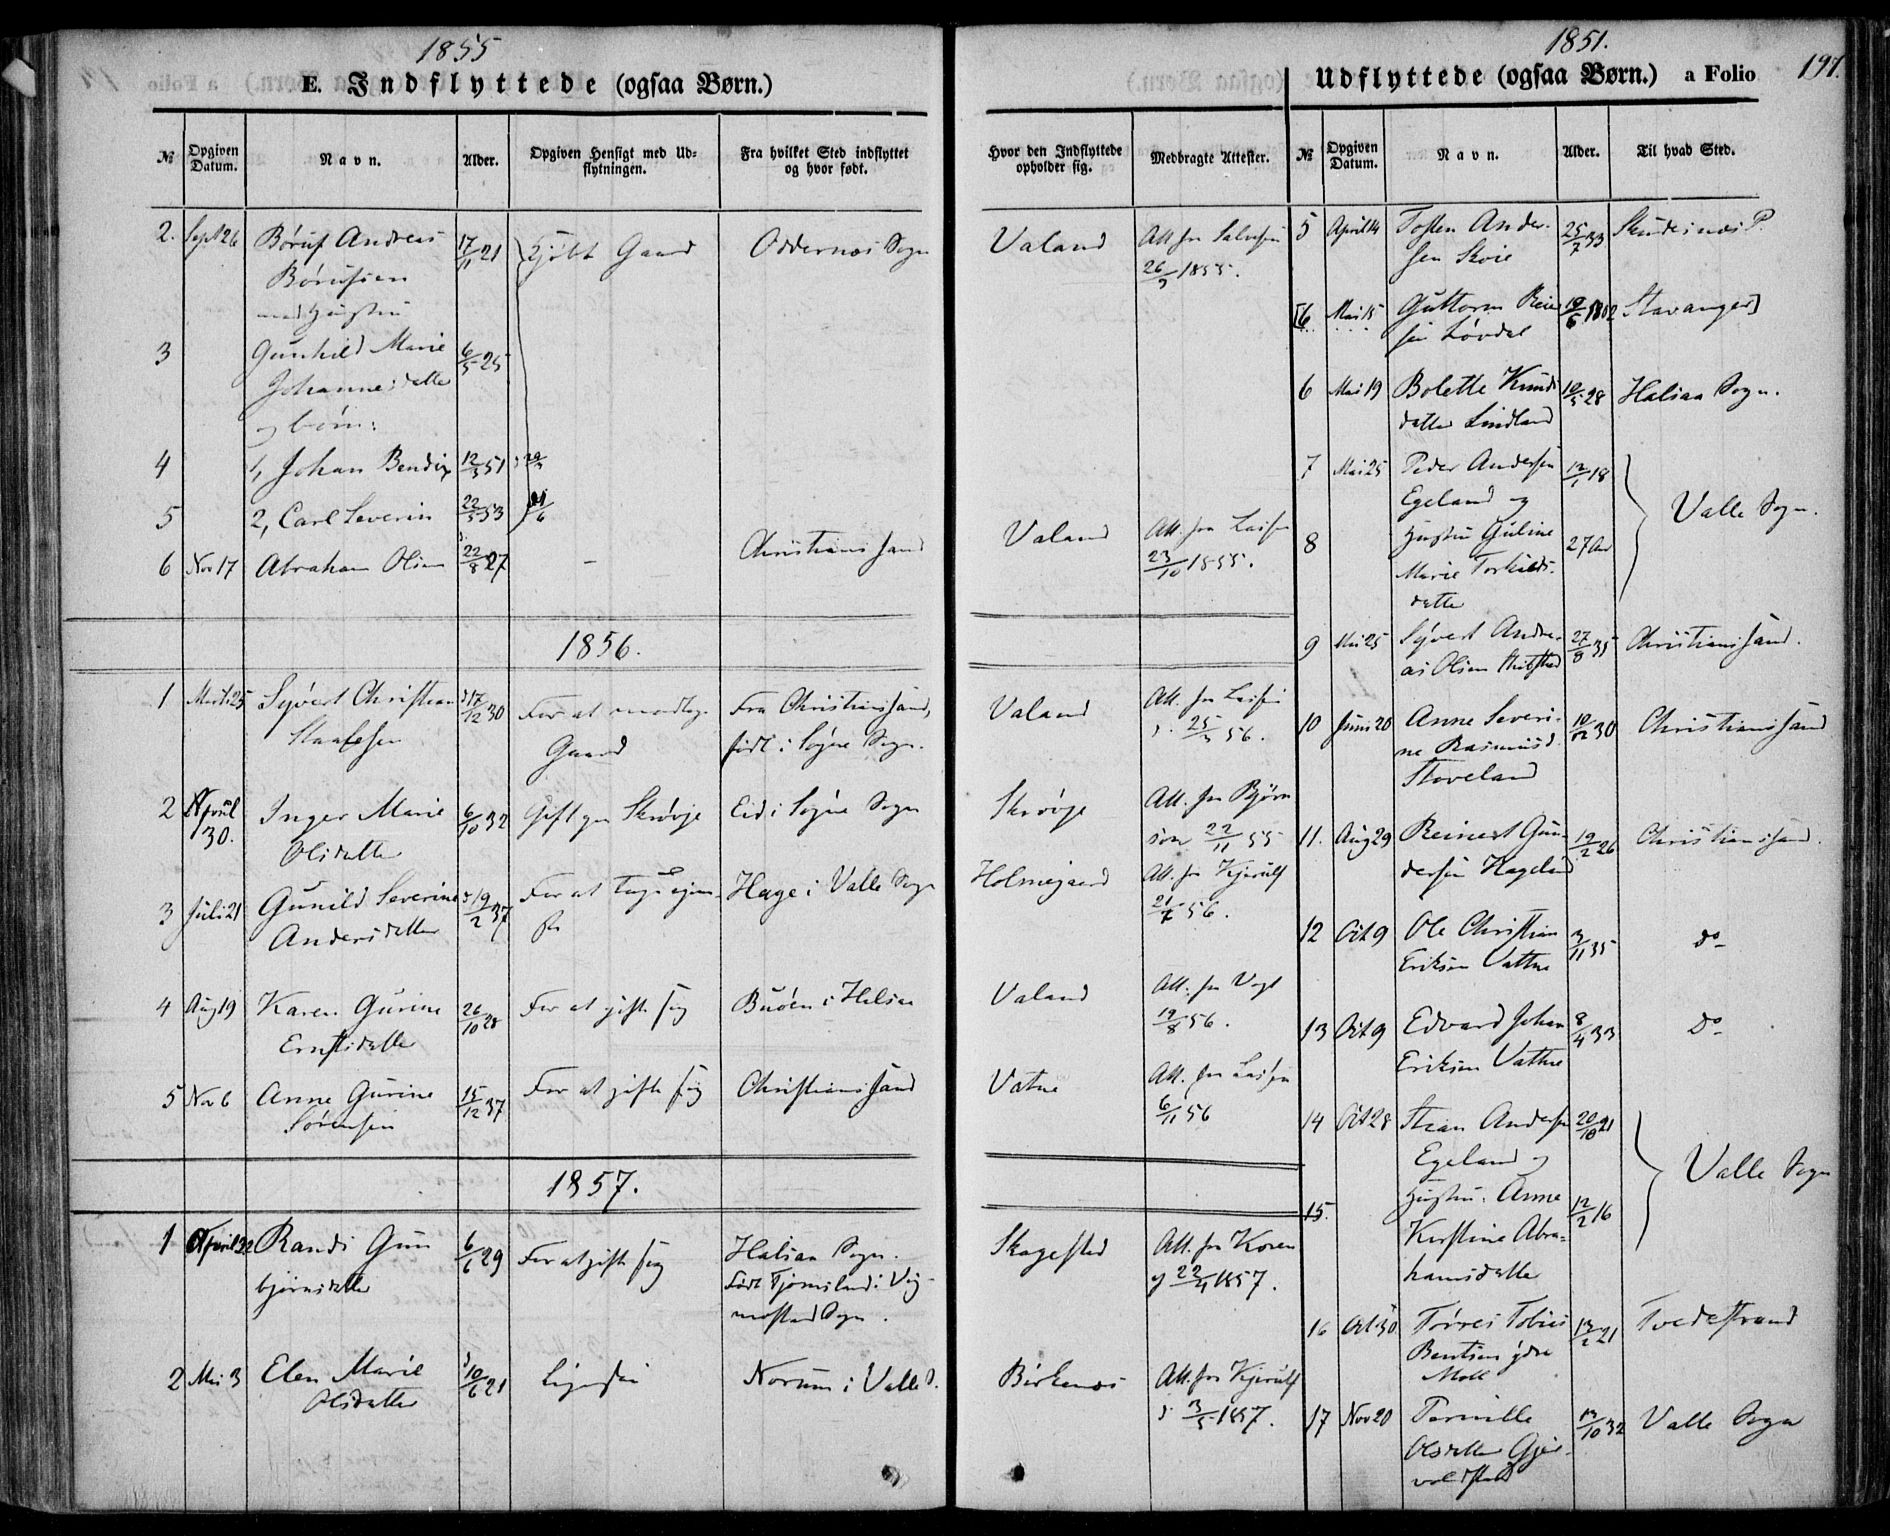 1855
E. Indflyttede (ogsaa Børn.)
№ Opgiven Datum. Navn. Alder. Opgiven Hensigt med Udflytningen. Fra hvilket Sted indflyttet og hvor født.
Hvor den Indflyttede opholder sig. Medbragte Attester.
2. Sept 26 Børuf Andreas 17/11 21 Kjøbt Gaard Oddernæs Sogn Valand Att. fra Salvesen
Børufsen 26/9 1855.
med Hustru
3 Gunhild Marie 6/5 25
Johannesdatter
og børn:
4 1, Johan Bendix 12/3 51
5 2, Carl Severin 22/5 53
6 Nov 17 Abraham Olsen 22/8 27 - Christianssand Valand Att. fra Lassen
23/10 1855.
1856.
1 Marts 25 Syvert Christian 17/12 30 For at modtage Fra Christianssand, Valand Att. fra Lassen
Gaard født i Søgne Sogn. 25/3 56.
2 April 30. Inger Marie 6/10 32 Gift paa Skrøvje Eid i Søgne Sogn Skrøvje Att. fra Bjørn
Olsdatter søn 22/11 55
3 Juli 21 Gunild Severine 19/2 37 For at tage tjene- Hage i Valle Sogn Holmegaard Att. fra Kjerulf
Andersdatter ste 21/7 56.
4 Aug 19 Karen Gurine 26/10 28 For at gifte sig Buøen i Halsaa Valand Att. fra Vogt
Ernstsdatter 19/8 56.
5 Nov 6 Anne Gurine 15/12 37 For at gifte sig Christianssand Vatne Att. fra Lassen
Sørensen 6/11 56
1857.
1 April 22 Randi Gun 6/6 29 For at gifte sig Halsaa Sogn. Skagestad Att. fra Koren
bjørnsdatter født Tjomsland i Vig- 22/4 1857.
mostad Sogn.
2 Mai 3 Elen Marie 10/6 21 Ligesaa Norum i Valle S. Birkenæs Att. fra Kjerulf
Olsdatter 3/5 1857.
1851.
Udflyttede (ogsaa Børn.) a Folio 197.
№ Opgiven Datum. Navn. Alder. Til hvad Sted.
5 April 14 Tosten Ander- 25/7 33 Skudesnæs P.
sen Skoie
[6 Mai 15 Guttorm Reier 19/6 1802 Stavanger]
sen Løvdal
6 Mai 19 Bolette Knuds 10/5 28 Halsaa Sogn.
datter Lindland
7 Mai 25 Peder Andersen 12/1 18 Valle Sogn.
Egeland og
8 Hustru Guline 27 Aar
Marie Torkilds-
datter
9 Mai 25 Syvert Andre- 27/8 35 Christianssand.
as Olsen
10 Juni 20 Anne Severi- 10/12 30 Christianssand
ne Rasmusd.
Stoveland
11. Aug 29 Reinert Gun- 19/2 26 Christianssand.
dersen Hageland
12 Oct 9 Ole Christian 3/11 35 do
Eriksen Vattne
13 Oct 9 Edvard Johan 8/4 33 Do
Eriksen Vattne
14 Oct 28 Stean Andersen 20/10 21 Valle Sogn
Egeland og
15. Hustru: Anne 12/2 16
Kirstine Abra-
hamsdatter
16 Oct 30 Tørres Tobias 13/2 21 Tvedestrand
Bentsen ydre
Moll
17 Nov 20 Tarville 13/10 32 Valle Sogn
Olsdatter Gjer-
voldstad